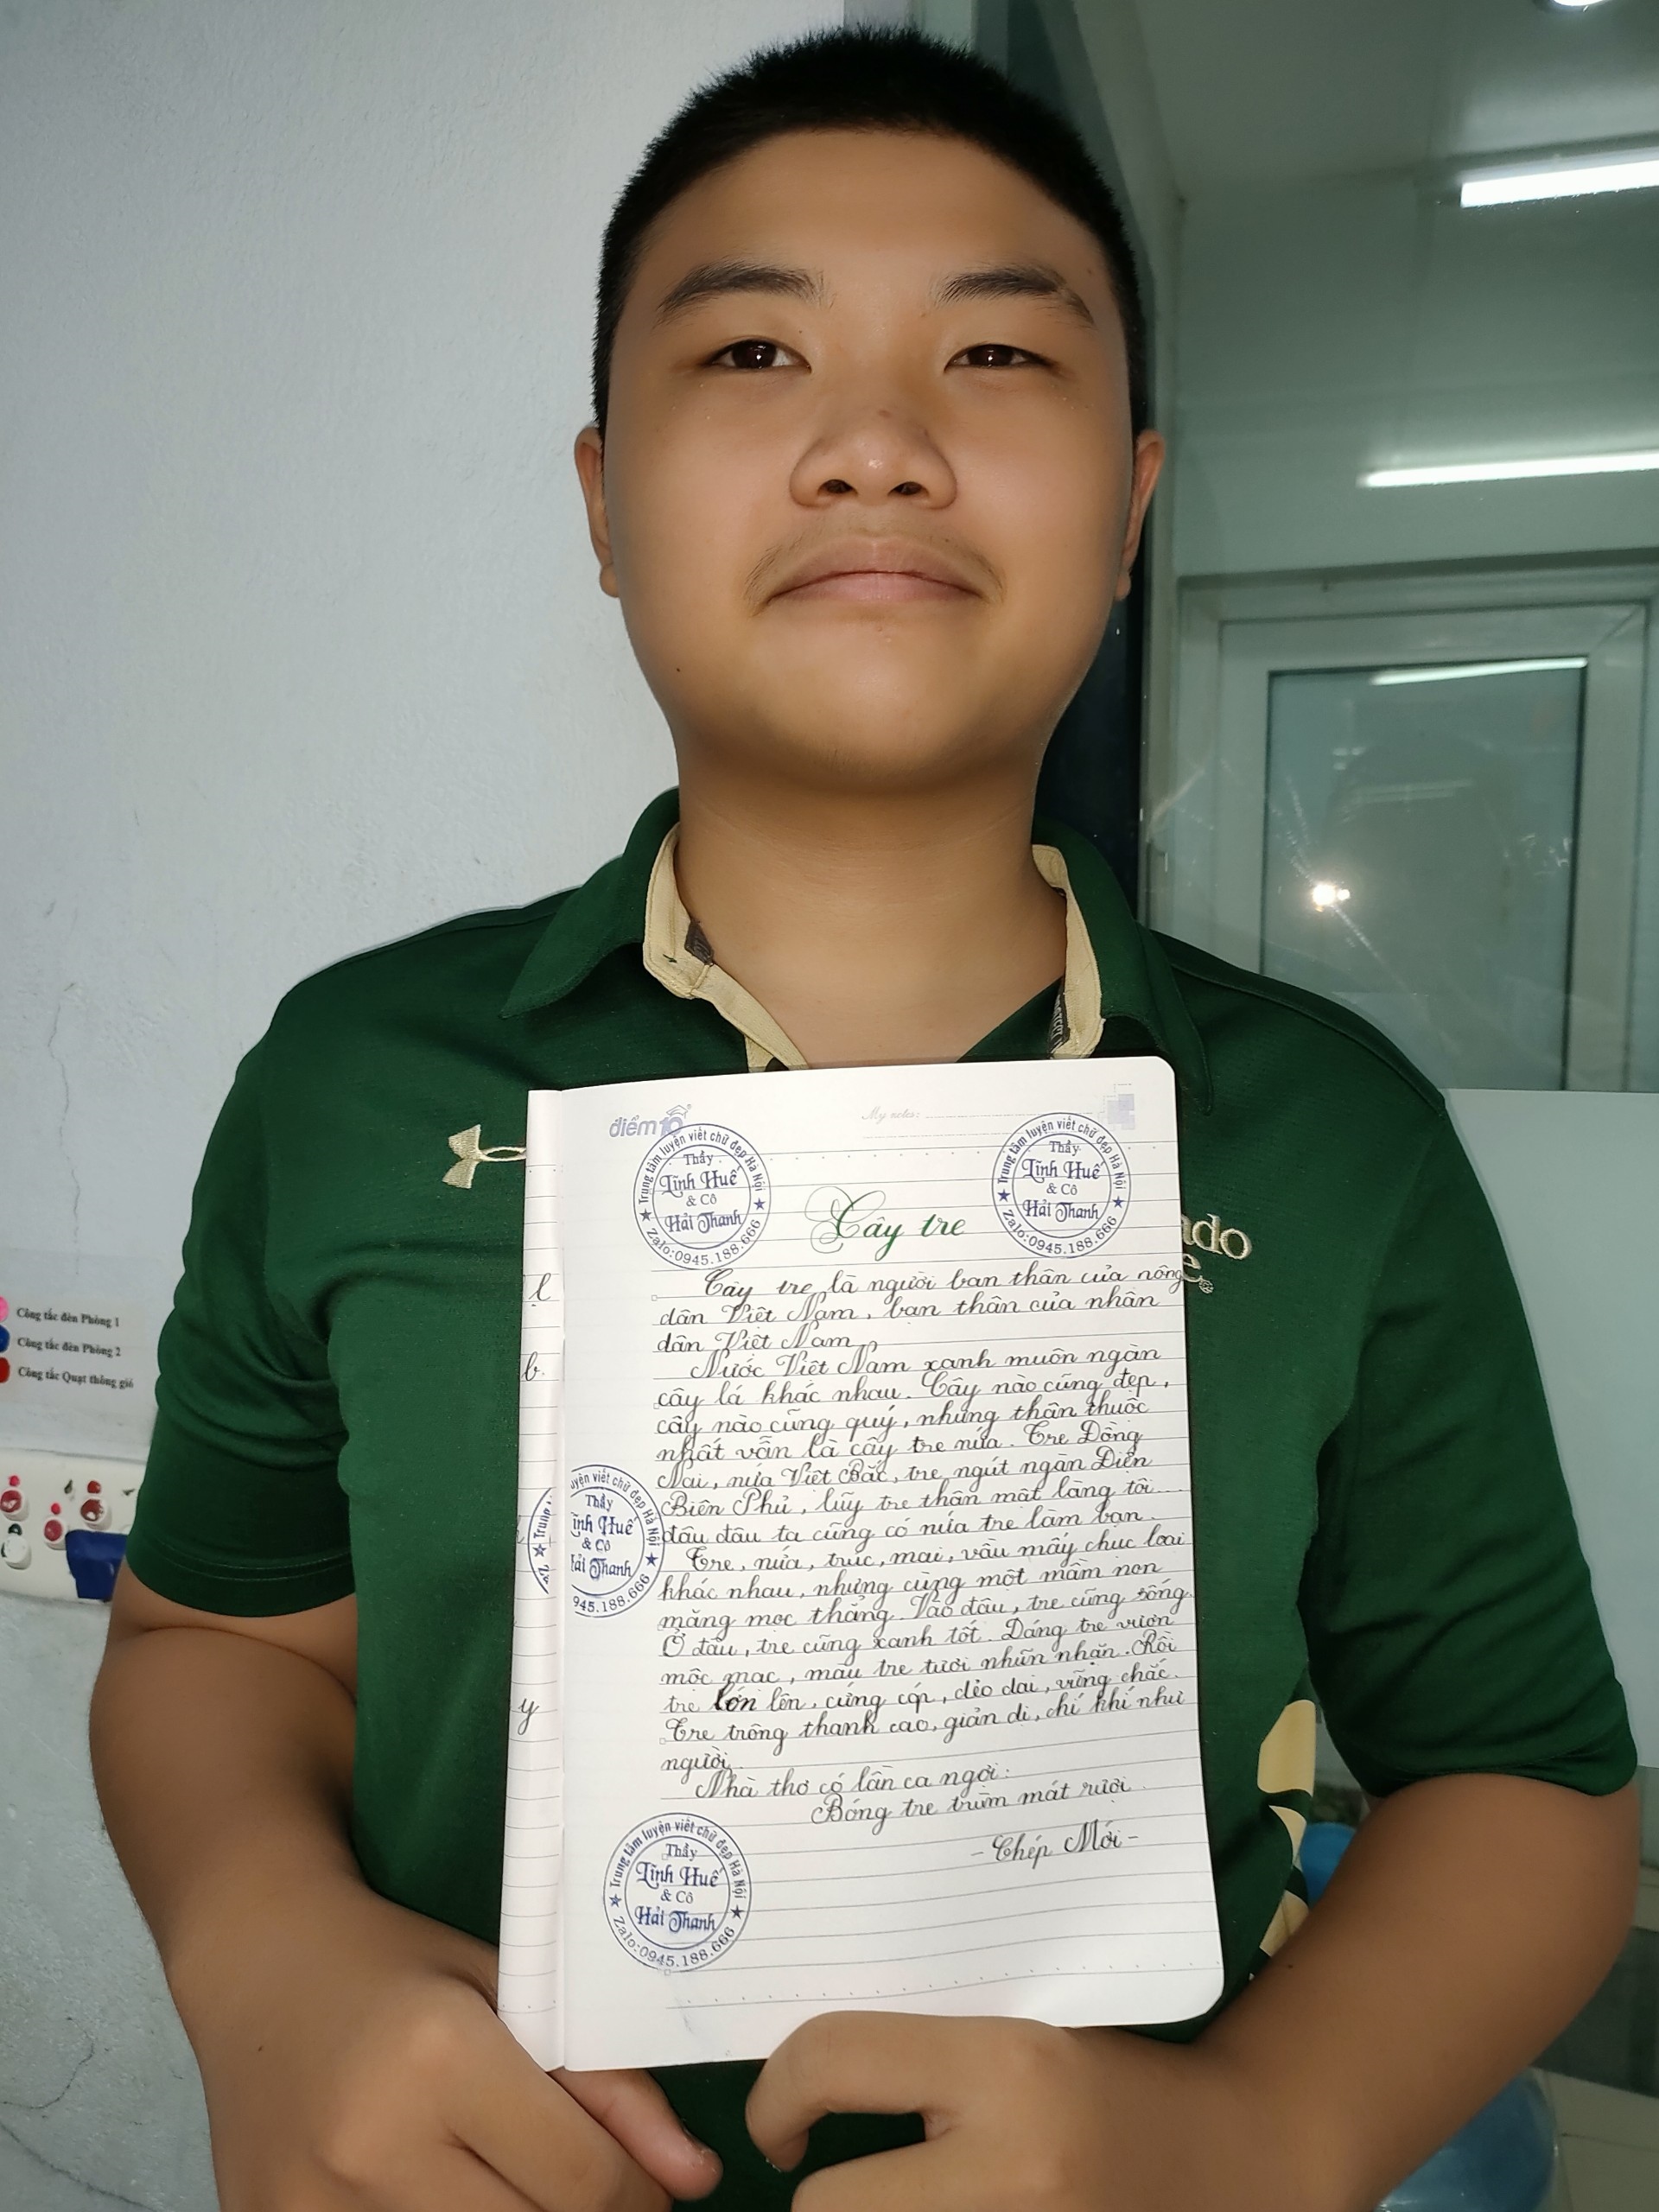 điểm10
My notes:
Trung tâm luyện viết chữ đẹp Hà Nội
Thầy
Lĩnh Huế
& Cô
Hải Thanh
Zalo:0945.188.666
Trung tâm luyện viết chữ đẹp Hà Nội
Thầy
Lĩnh Huế
& Cô
Hải Thanh
Zalo:0945.188.666
Cây tre
Cây tre là người bạn thân của nông
dân Việt Nam, bạn thân của nhân
dân Việt Nam
Nước Việt Nam xanh muôn ngàn
cây lá khác nhau. Cây nào cũng đẹp,
cây nào cũng quý, nhưng thân thuộc
nhất vẫn là cây tre nứa. Tre Đồng
Nai, nứa Việt Bắc, tre ngút ngàn Điện
Biên Phủ, lũy tre thân mật làng tôi....
đâu đâu ta cũng có nứa tre làm bạn.
Tre, nứa, trúc, mai, vầu mấy chục loại
khác nhau, nhưng cùng một mầm non
măng mọc thẳng. Vào đâu, tre cũng sống
Ở đâu, tre cũng xanh tốt. Dáng tre vươn
mộc mạc, màu tre tươi nhũn nhặn. Rồi
tre lớn lên, cứng cáp, dẻo dai, vững chắc.
Tre trông thanh cao, giản dị, chí khí như
người.
Nhà thơ có lần ca ngợi:
Bóng tre trùm mát rượi
- Thép Mới -
uyện viết chữ đẹp Hà Nội
Thầy
ĩnh Huế
& Cô
Hải Thanh
945.188.666
Trung
Trung tâm luyện viết chữ đẹp Hà Nội
Thầy
Lĩnh Huế
& Cô
Hải Thanh
Zalo:0945.188.666
l
b
y
ado
e
Công tắc đèn Phòng 1
Công tắc đèn Phòng 2
Công tắc Quạt thông gió